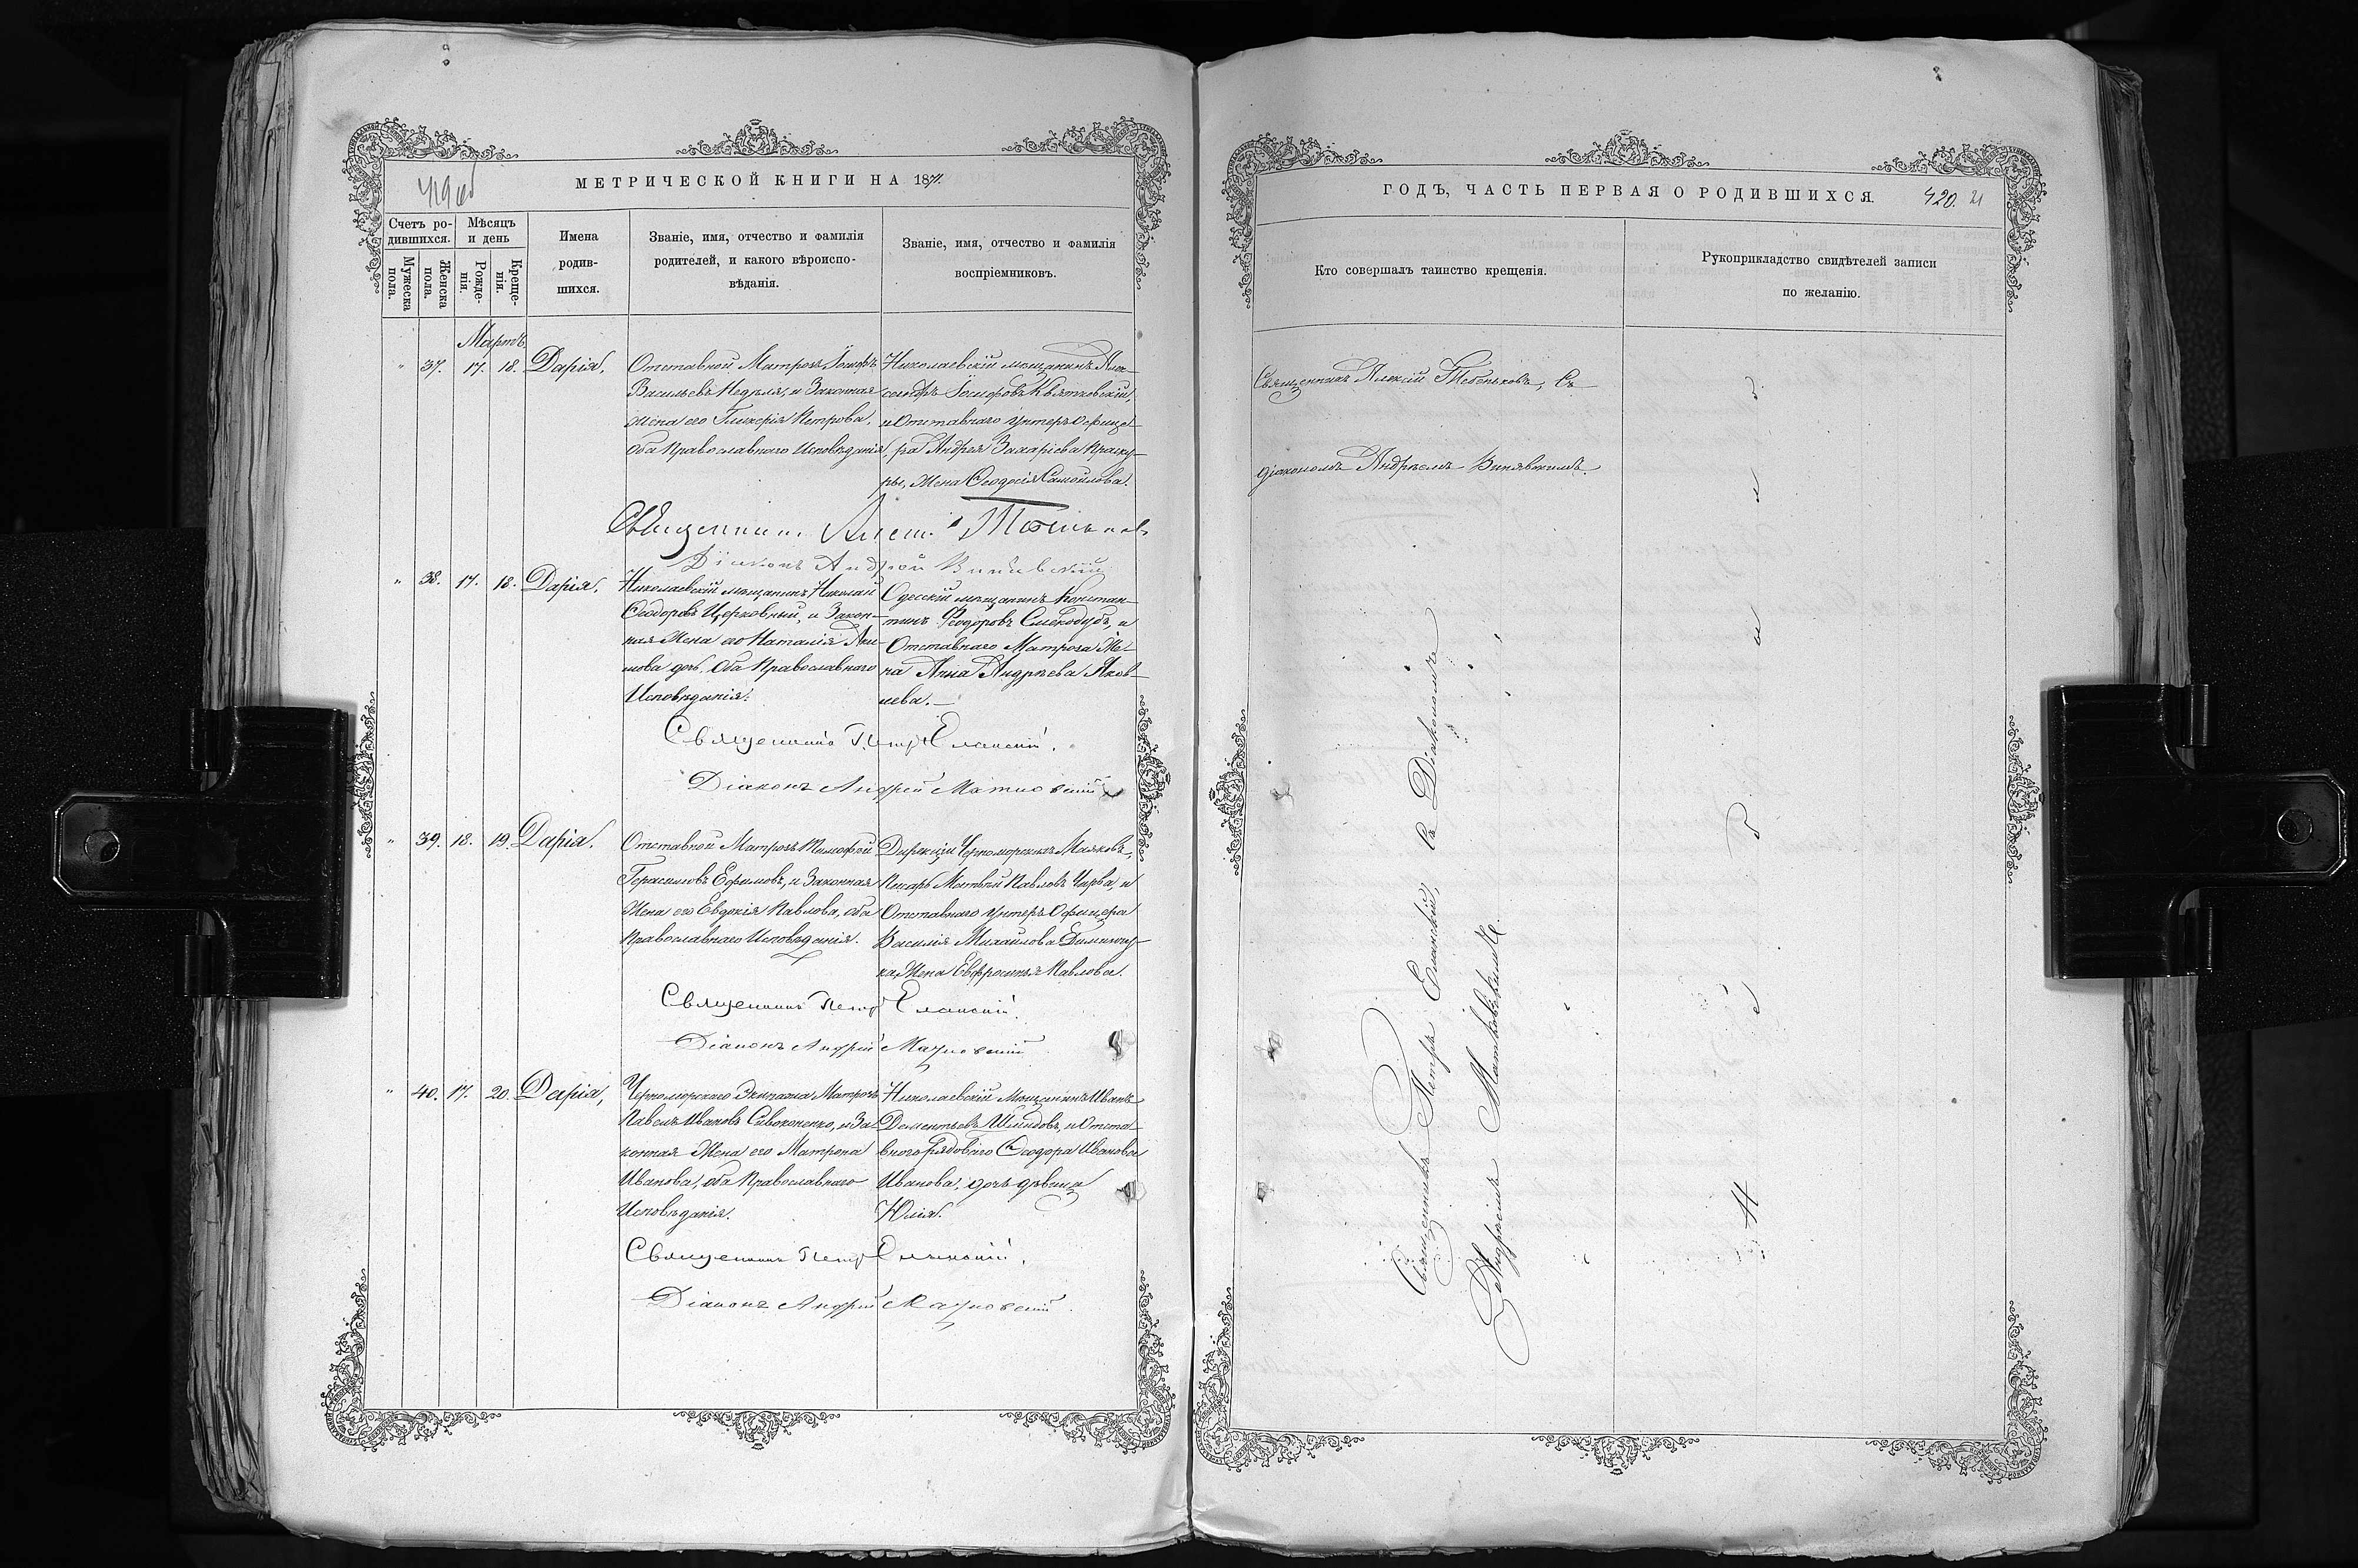 419 об
МЕТРИЧЕСКОЙ КНИГИ НА 1871.
Счетъ родившихся.
Мужеска пола.
Женска пола.
Мѣсяцъ и день
Рожденія.
Крещенія.
Имена родившихся.
Званіе, имя, отчество и фамилія родителей, и какого вѣроисповѣданія.
Званіе, имя, отчество и фамилія воспріемниковъ.
Мартъ
" 37. 17. 18. Дарія,
Отставной Матрозъ Іосифъ
Васильевъ Недѣля, и Законная
Жена его Гликерія Петрова,
оба Православнаго Исповѣданія,
Николаевскій мѣщанинъ Алек-
сандръ Іосифовъ Квятковскій,
и Отставнаго унтеръ Офице-
ра Андрея Захаріева
ры, Жена Ѳеодосія Самойлова.
Священникъ
Діаконъ Андрей
" 38. 17. 18. Дарія,
Николаевскій мѣщанинъ Николай
Ѳеодоровъ Церковный, и Закон-
ная Жена его Наталія Яки-
мова дочь, Оба Православнаго
Исповѣданія.
Одесскій мѣщанинъ Констан-
тинъ Ѳеодоровъ и
Отставнаго Матроза Же-
на Анна Андреева Яков-
лева.
Священникъ Петръ Еланскій.
Діаконъ Андрей Матковскій
" 39. 18. 19. Дарія,
Отставной Матрозъ Тимофей
Герасимовъ Ефимовъ, и Законная
Жена его Евдокія Павлова, оба
Православнаго Исповѣданія.
Дирекціи Черноморскихъ Маяковъ,
Писарь Матвѣй Павловъ Чирва, и
Отставнаго унтеръ Офицера
Василія Михайлова
ка, Жена Евфросинья Павлова.
Священникъ Петръ Еланскій.
Діаконъ Андрей Матковскій
" 40. 17. 20. Дарія,
Черноморскаго Экипажа Матрозъ
Павелъ Ивановъ Сивоконенко, и За-
конная Жена его Матрона
Иванова, оба Православнаго
Исповѣданія.
Николаевскій Мѣщанинъ Иванъ
Дементьевъ и Отста-
внаго рядоваго Ѳеодора Иванова
Иванова, дочь дѣвица
Юлія.
Священникъ Петръ Еланскій.
Діаконъ Андрей Матковскій.
ГОДЪ, ЧАСТЬ ПЕРВАЯ О РОДИВШИХСЯ.
420. 21
Кто совершалъ таинство крещенія.
Рукоприкладство свидѣтелей записи по желанію.
Священникъ Алексій Тебеньковъ, съ
діакономъ Андреемъ
Священникъ Петръ Еланскій, съ Діакономъ
Андреемъ Матковскимъ.